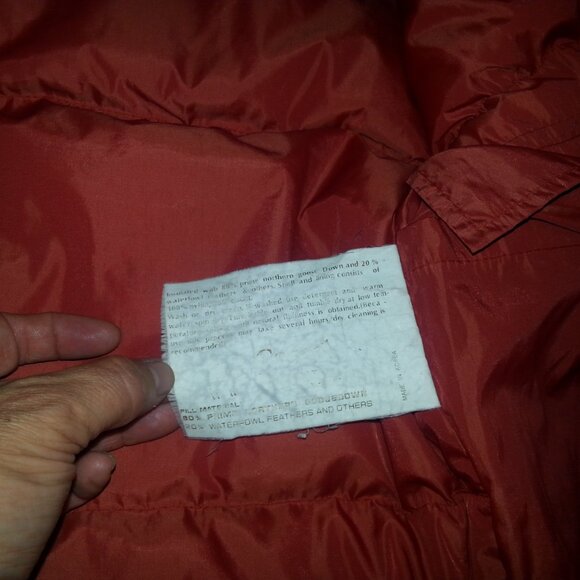 Insulated with 80% prime northern goose Down and 20 %
waterfowl feathers & others. Shell and lining consists of
100% nylon
Wash or dry clean. If washed use detergent and warm
water, spin or and tumble dry at low tem-
natural fluffiness is obtained.(Beca -
use this process may take several hours, dry cleaning is
recommended
FILL MATERIAL
80% PRIME NORTHERN GOOSEDOWN
20% WATERFOWL FEATHERS AND OTHERS
MADE IN KOREA